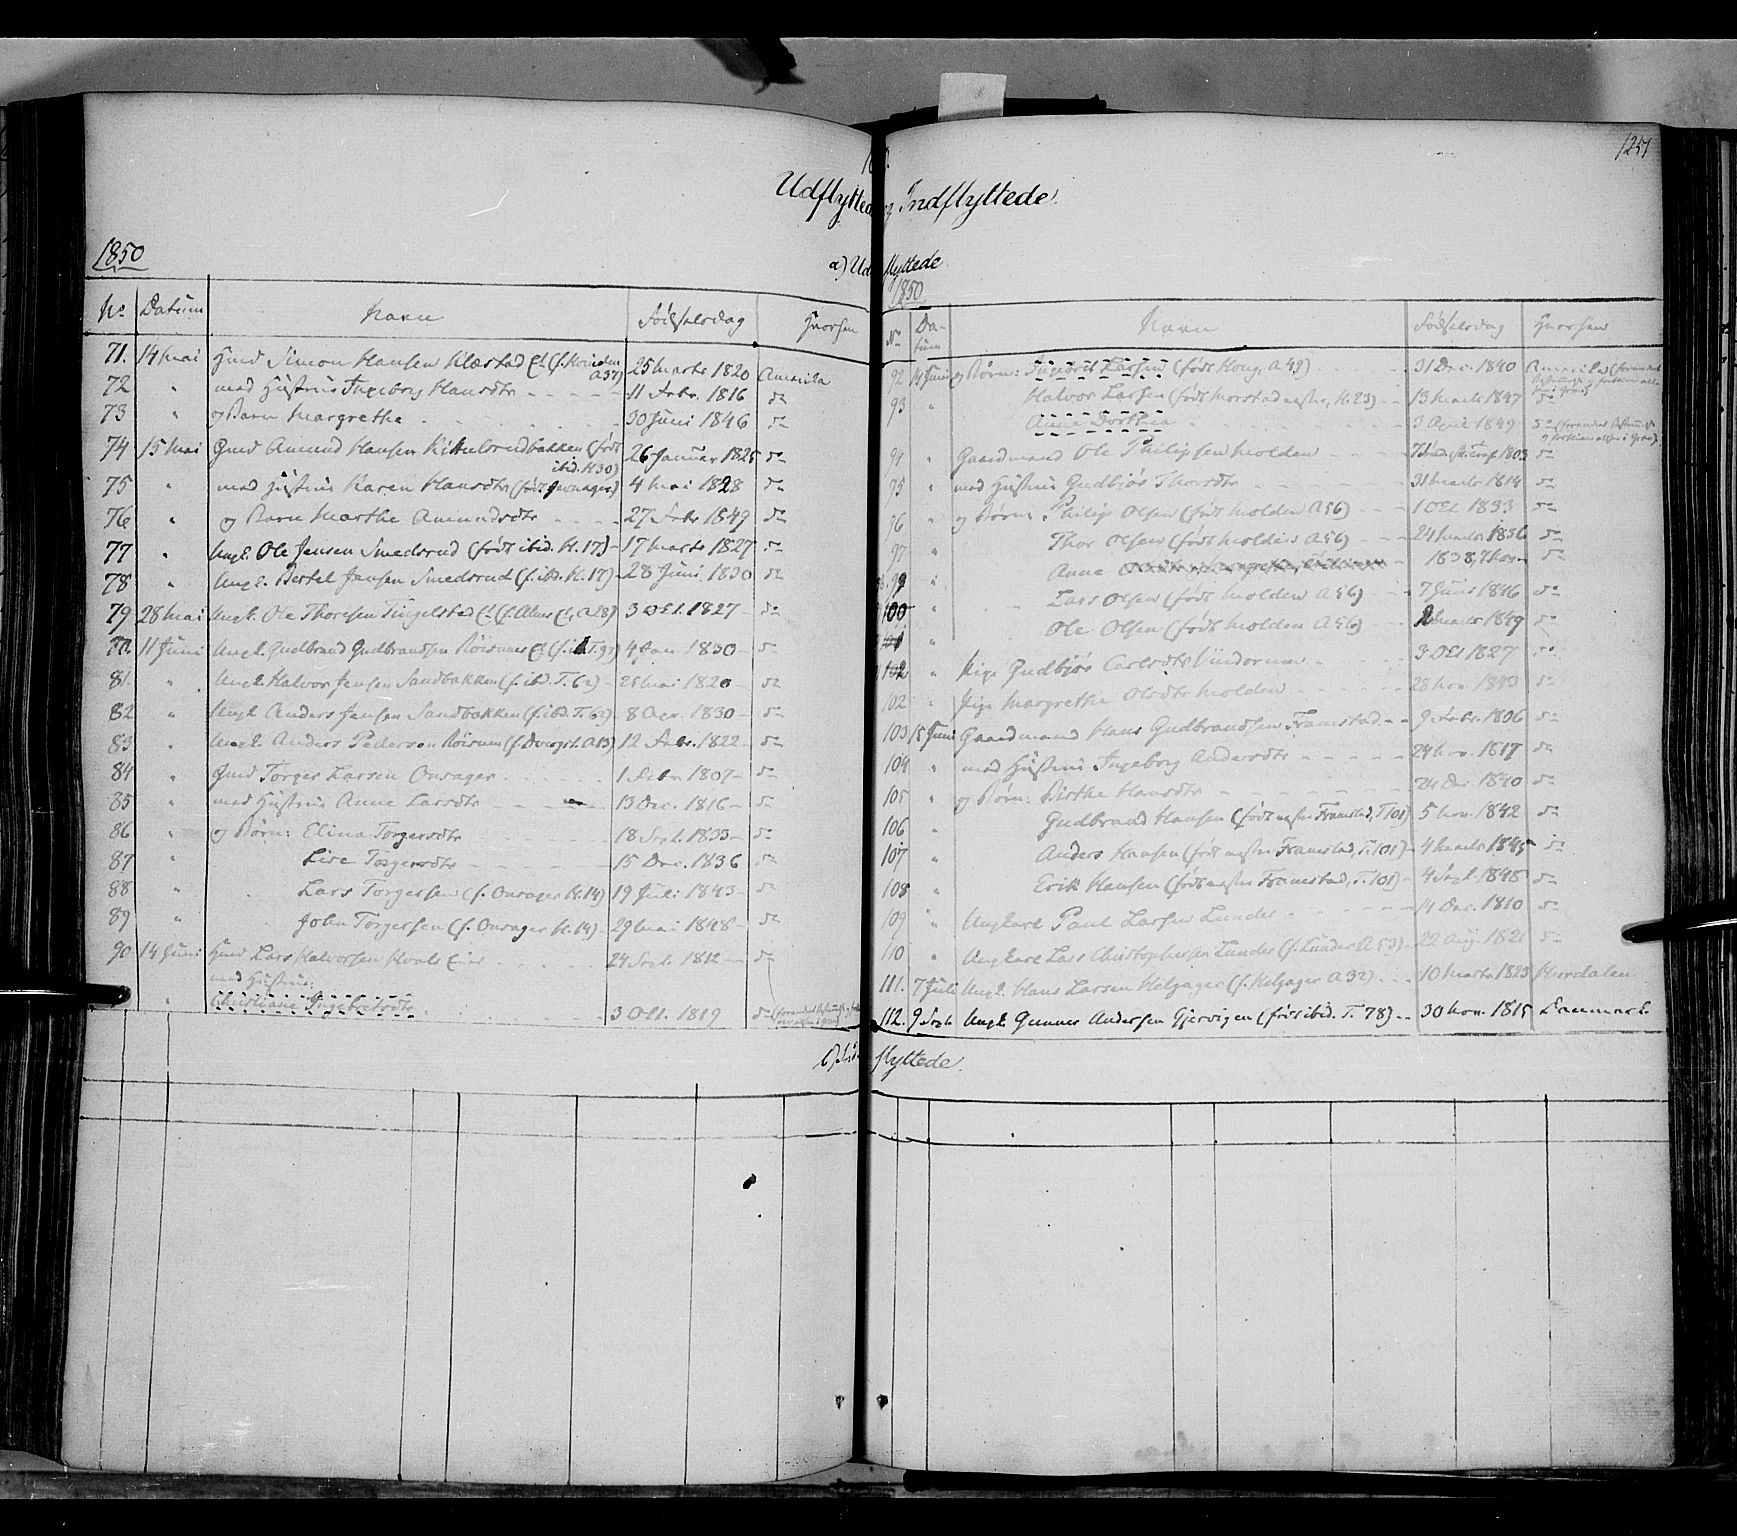 1251
Udflyttede og Indflyttede
1850
a) Udflyttede
No Datum Navn Fødselsdag Hvorhen
71. 14 Mai Hmd Simon Hansen Klæstad Et (f. A37) 25 Marts 1820 Amerika
72 " med Hustrue Ingeborg Hansdtr 11 Febr. 1816 do
73 " og Barn Margrethe 30 Juni 1846 do
74 15 Mai Gmd Amund Hansen (født ibid. H30) 26 Januar 1825 do
75 " med Hustrue Karen Hansdtr (født Onsager) 4 Mai 1828 do
76 " og Barn Marthe Amundsdtr 27 Febr 1849 do
77 " Ungk. Ole Jensen Smedsrud (født ibid. H. 17) 17 Marts 1827 do
78 " Ungk. Bertel Jensen Smedsrud (f. ibid. H. 17) 28 Juni 1830 do
79 28 Mai Ungk. Ole Thoresen Tingelstad Et (f. Alm Et, A28) 3 Oct. 1827 do
11 Juni Ungk. Gudbrand Gudbrandsen Röisum Et (f. ib. T.91) 4 Jan. 1830 do
81. " Ungk. Halvor Jensen Sandbakken (f. ibd. T. 62) 28 Mai 1820 do
82 " Ungk. Anders Jensen Sandbakken (f. ibd. T. 62) 8 Apr. 1830 do
83 " Ungk. Anders Pedersen Röisum (f. A13) 12 Febr. 1822 do
84 " Gmd Torger Larsen Onsager 1 Febr 1807 do
85 " med Hustrue Anne Larsdtr 13 Dec. 1816 do
86 " og Børn: Elina Torgersdtr 18 Sept. 1833 do
87 " Lise Torgersdtr 15 Dec. 1836 do
88 " Lars Torgersen (f. Onsager H. 14) 19 Juli 1843 do
89 " John Torgersen (f. Onsager H. 14) 29 Mai 1848 do
90 14 Juni Hmd Lars Halvorsen Hvals Eier 24 Sept. 1812 do
med Hustrue:
" Christiane Ingebretsdtr 3 Oct. 1819 do
1850
No Datum Navn Fødselsdag Hvorhen
92 14 Juni og Børn: Ingebret Larsen (født Kong. A 49) 31 Dec. 1840 Amerika
93 " Halvor Larsen (født Morstad, H. 23) 13 Marts 1847 do
Anne Dorthea 3 April 1849 do
94 " Gaardmand Ole Philipsen Molden 1803 do
95 " med Hustrue Gudbjør Thorsdtr 31 Marts 1814 do
96 " og Børn: Philip Olsen (født Molden A56) 1 Oct. 1833 do
97 " Thor Olsen (født Molden A56) 24 Marts 1836 do
99 " Anne 1838, 7 Nov. do
100 " Lars Olsen (født Molden A56) 7 Juni 1846 do
101 " Ole Olsen (født Molden A56) Marts 1849 do
102 " Pige Gudbjør Carlsdtr 3 Oct 1827 do
102 " Pige Margrethe Olsdtr Molden 28 Nov. 1843 do
103 15 Juni Gaardmand Hans Gudbrandsen Framstad 9 Febr. 1806 do
104 " med Hustrue Ingeborg Andersdtr 24 Nov. 1817 do
105 " og Børn: Birthe Hansdtr 24 Dec. 1840 do
106 " Gudbrand Hansen (født nestre Framstad, T101) 5 Nov. 1842 do
107 " Anders Hansen (født nestre Framstad, T. 101) 4 Marts 1845 do
108 " Erik Hansen (født nestre Framstad, T. 101) 4 Sept. 1848 do
109 " Ungkarl Paul Larsen Lunder 14 Dec. 1810 do
110 " Ungkarl Lars Christophersen Lunder (f. Lunder A 53) 22 Aug. 1821 do
111. 7 Juli Ungk. Hans Larsen Helgager (f. Helgager A 32) 10 Marts 1823 Hurdalen
112. 9 Sept. Ungk. Gunner Andersen Gjervigen (født ibid. T. 78) 30 Nov. 1815 Danmark
b) Indflyttede